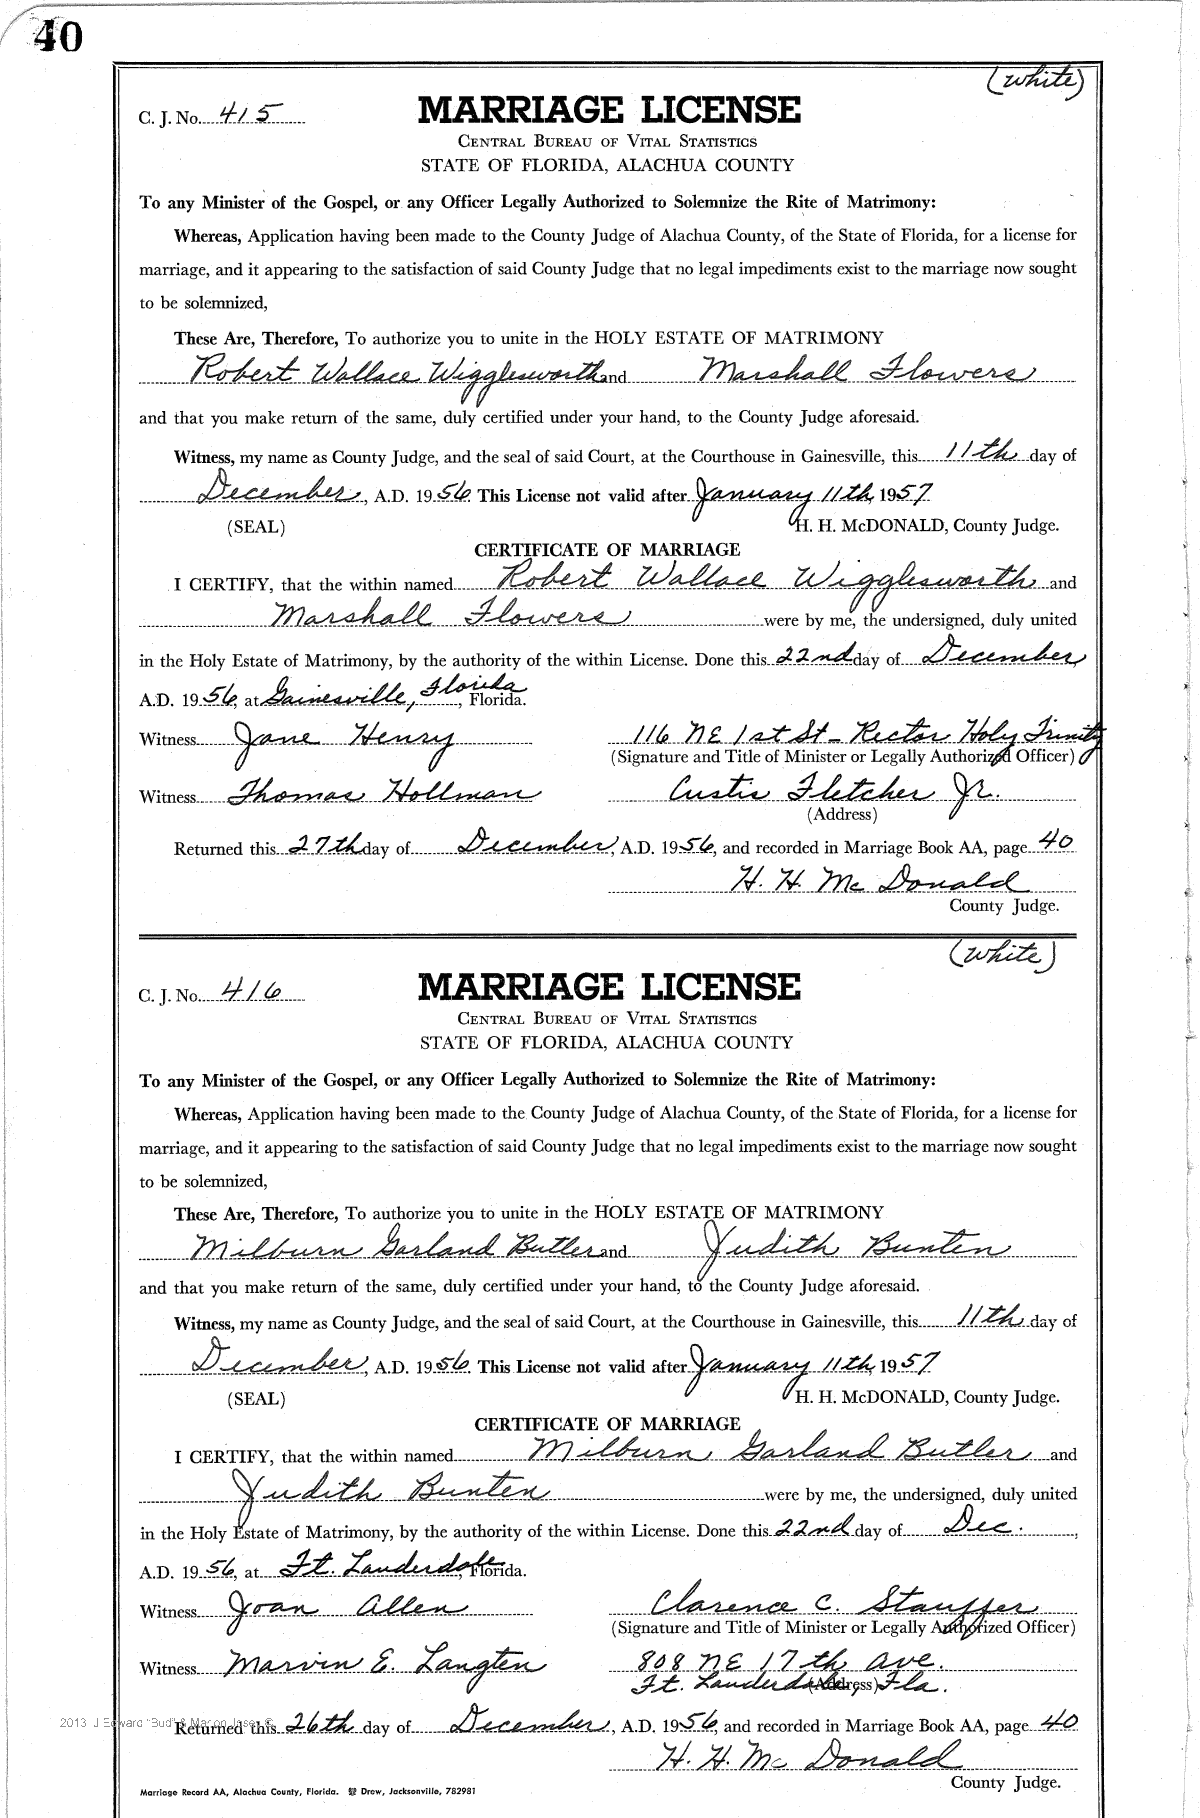 40
(White)
C. J. No. 415
MARRIAGE LICENSE
CENTRAL BUREAU OF VITAL STATISTICS
STATE OF FLORIDA, ALACHUA COUNTY
To any Minister of the Gospel, or any Officer Legally Authorized to Solemnize the Rite of Matrimony:
Whereas, Application having been made to the County Judge of Alachua County, of the State of Florida, for a license for
marriage, and it appearing to the satisfaction of said County Judge that no legal impediments exist to the marriage now sought
to be solemnized,
These Are, Therefore, To authorize you to unite in the HOLY ESTATE OF MATRIMONY
Robert Wallace Wigglesworth and Marshall Flowers
and that you make return of the same, duly certified under your hand, to the County Judge aforesaid.
Witness, my name as County Judge, and the seal of said Court, at the Courthouse in Gainesville, this 11th day of
December, A.D. 1956. This License not valid after January 11th, 1957
(SEAL) H. H. McDONALD, County Judge.
CERTIFICATE OF MARRIAGE
I CERTIFY, that the within named Robert Wallace Wigglesworth and
Marshall Flowers were by me, the undersigned, duly united
in the Holy Estate of Matrimony, by the authority of the within License. Done this 22nd day of December,
A.D. 1956, at Gainesville, Florida, Florida.
Witness Jane Henry 116 NE 1st St - Rector Holy Trinity
(Signature and Title of Minister or Legally Authorized Officer)
Witness Thomas Hollman Custis Fletcher Jr.
(Address)
Returned this 27th day of December, A.D. 1956, and recorded in Marriage Book AA, page 40
H. H. Mc Donald
County Judge.
(White)
C. J. No. 416
MARRIAGE LICENSE
CENTRAL BUREAU OF VITAL STATISTICS
STATE OF FLORIDA, ALACHUA COUNTY
To any Minister of the Gospel, or any Officer Legally Authorized to Solemnize the Rite of Matrimony:
Whereas, Application having been made to the County Judge of Alachua County, of the State of Florida, for a license for
marriage, and it appearing to the satisfaction of said County Judge that no legal impediments exist to the marriage now sought
to be solemnized,
These Are, Therefore, To authorize you to unite in the HOLY ESTATE OF MATRIMONY
Milburn Garland Butler and Judith Bunten
and that you make return of the same, duly certified under your hand, to the County Judge aforesaid.
Witness, my name as County Judge, and the seal of said Court, at the Courthouse in Gainesville, this 11th day of
December, A.D. 1956. This License not valid after January 11th, 1957
(SEAL) H. H. McDONALD, County Judge.
CERTIFICATE OF MARRIAGE
I CERTIFY, that the within named Milburn Garland Butler and
Judith Bunten were by me, the undersigned, duly united
in the Holy Estate of Matrimony, by the authority of the within License. Done this 22nd day of Dec.,
A.D. 1956, at Ft. Lauderdale, Florida.
Witness Joan Allen Clarence C. Stauffer
(Signature and Title of Minister or Legally Authorized Officer)
Witness Marvin E. Langten 808 NE 17th Ave.
Ft. Lauderdale, Fla.
(Address)
2013 J Edward "Bud" & Marion
Returned this 26th day of December, A.D. 1956, and recorded in Marriage Book AA, page 40
H. H. Mc Donald
County Judge.
Marriage Record AA, Alachua County, Florida. Drew, Jacksonville, 782981